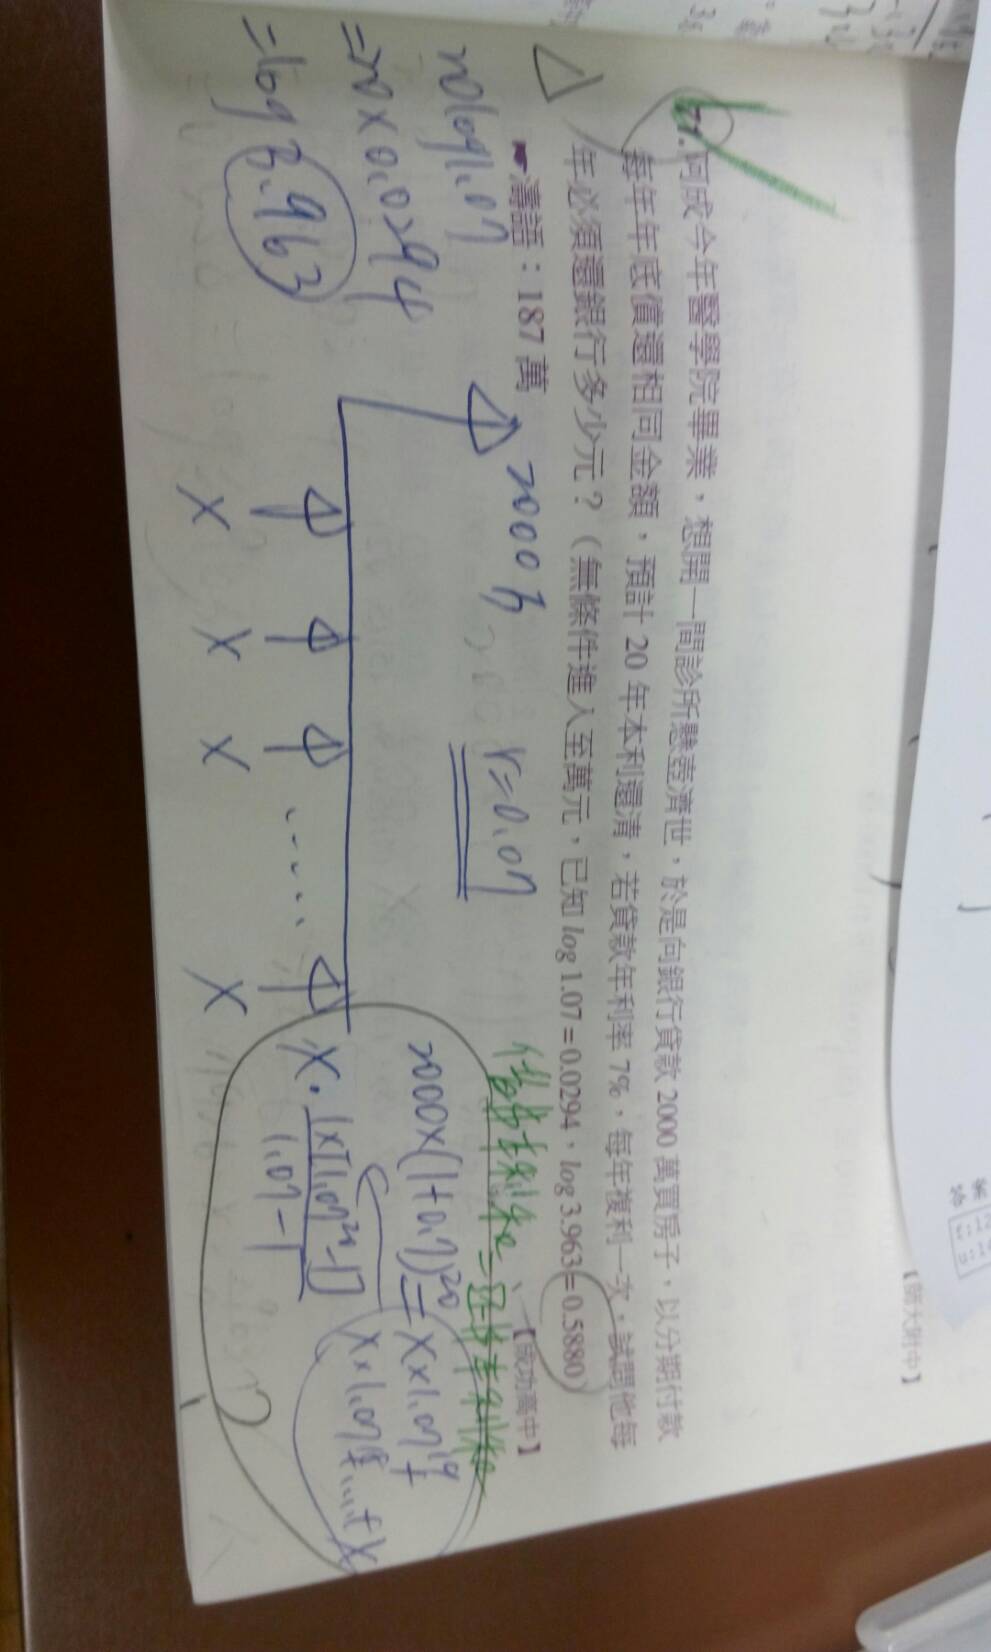 【師大附中】
21. 阿成今年醫學院畢業，想開一間診所懸壺濟世，於是向銀行貸款 2000 萬買房子，以分期付款
每年年底償還相同金額，預計 20 年本利還清，若貸款年利率 7%，每年複利一次，試問他每
年必須還銀行多少元？（無條件進入至萬元，已知 log 1.07 = 0.0294，log 3.963 = 0.5880）
【成功高中】
☛濤語：187 萬
20log1.07
=20×0.0294
=log3.963
2000萬
r=0.07
X X X ...... X
借款本利和=還款本利和
2000×(1+0.07)^20 = X×1.07^19 +
X×1.07^18 + ... + X
X · 1×[1.07^20-1]
1.07-1